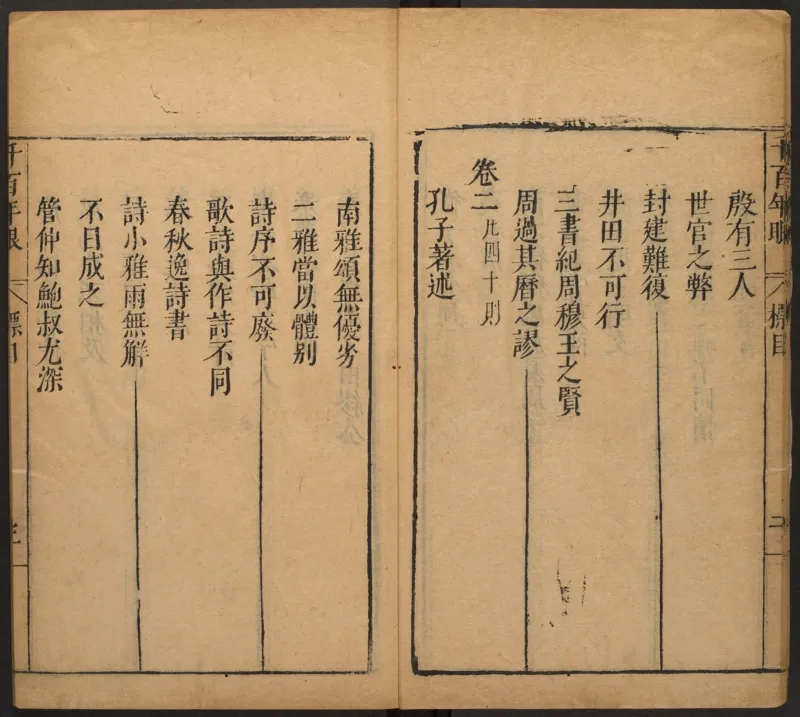 千百年眼 標目 二
殷有三人
世官之弊
封建難復
井田不可行
三書紀周穆王之賢
周過其曆之謬
卷二 凡四十則
孔子著述
南雅頌無優劣
二雅當以體别
詩序不可廢
歌詩與作詩不同
春秋逸詩書
詩小雅雨無解
不日成之
管仲知鮑叔尤深
千百年眼 標目 三